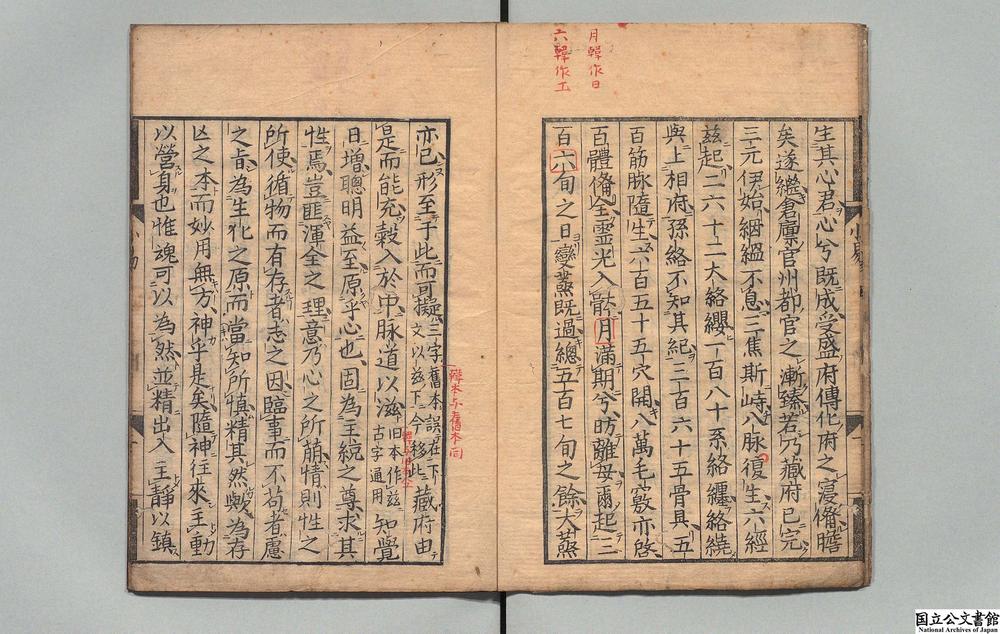 月韓作日
六韓作五
生其心君心兮既成受盛府傳化府之寖僃瞻
矣遂繼倉廩官州都官之漸臻若乃藏府已完
三元伊始絪縕不息三焦斯峙八脉復生六經
兹起二六十二大絡纓一百八十系絡纏絡繞
與上相府孫絡不知其紀三百六十五骨具五
百筋脉隨生六百五十五穴開八萬毛竅亦啓
百體僃全靈光入骸月滿期兮昉離母爾起三
百六旬之日變蒸既過總五百七旬之餘大蒸
小易
亦已形至于此而可擬三字舊本誤在下文以兹下今移此藏府由
是而能充榖入於中脉道以滋旧本作兹古字通用知覺
韓本与舊本同
日增聰明益至原乎心也固為主統之尊求其
性焉豈匪渾全之理意乃心之所萠情則性之
所使循物而有存者志之因臨事而不苟者慮
之旨為生化之原而當知所慎精其然歟為存
亾之本而妙用無方神乎是矣隨神往來主動
以營身也惟魂可以為然並精出入主靜以鎮
国立公文書館
National Archives of Japan